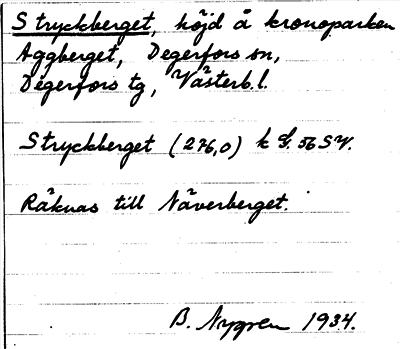 Stryckberget, höjd å kronoparken
Aggberget, Degerfors sn,
Degerfors tg, Västerb. l.
Stryckberget (276,0) k G. 56 SV.
Räknas till Näverberget.
B. Nygren 1934.